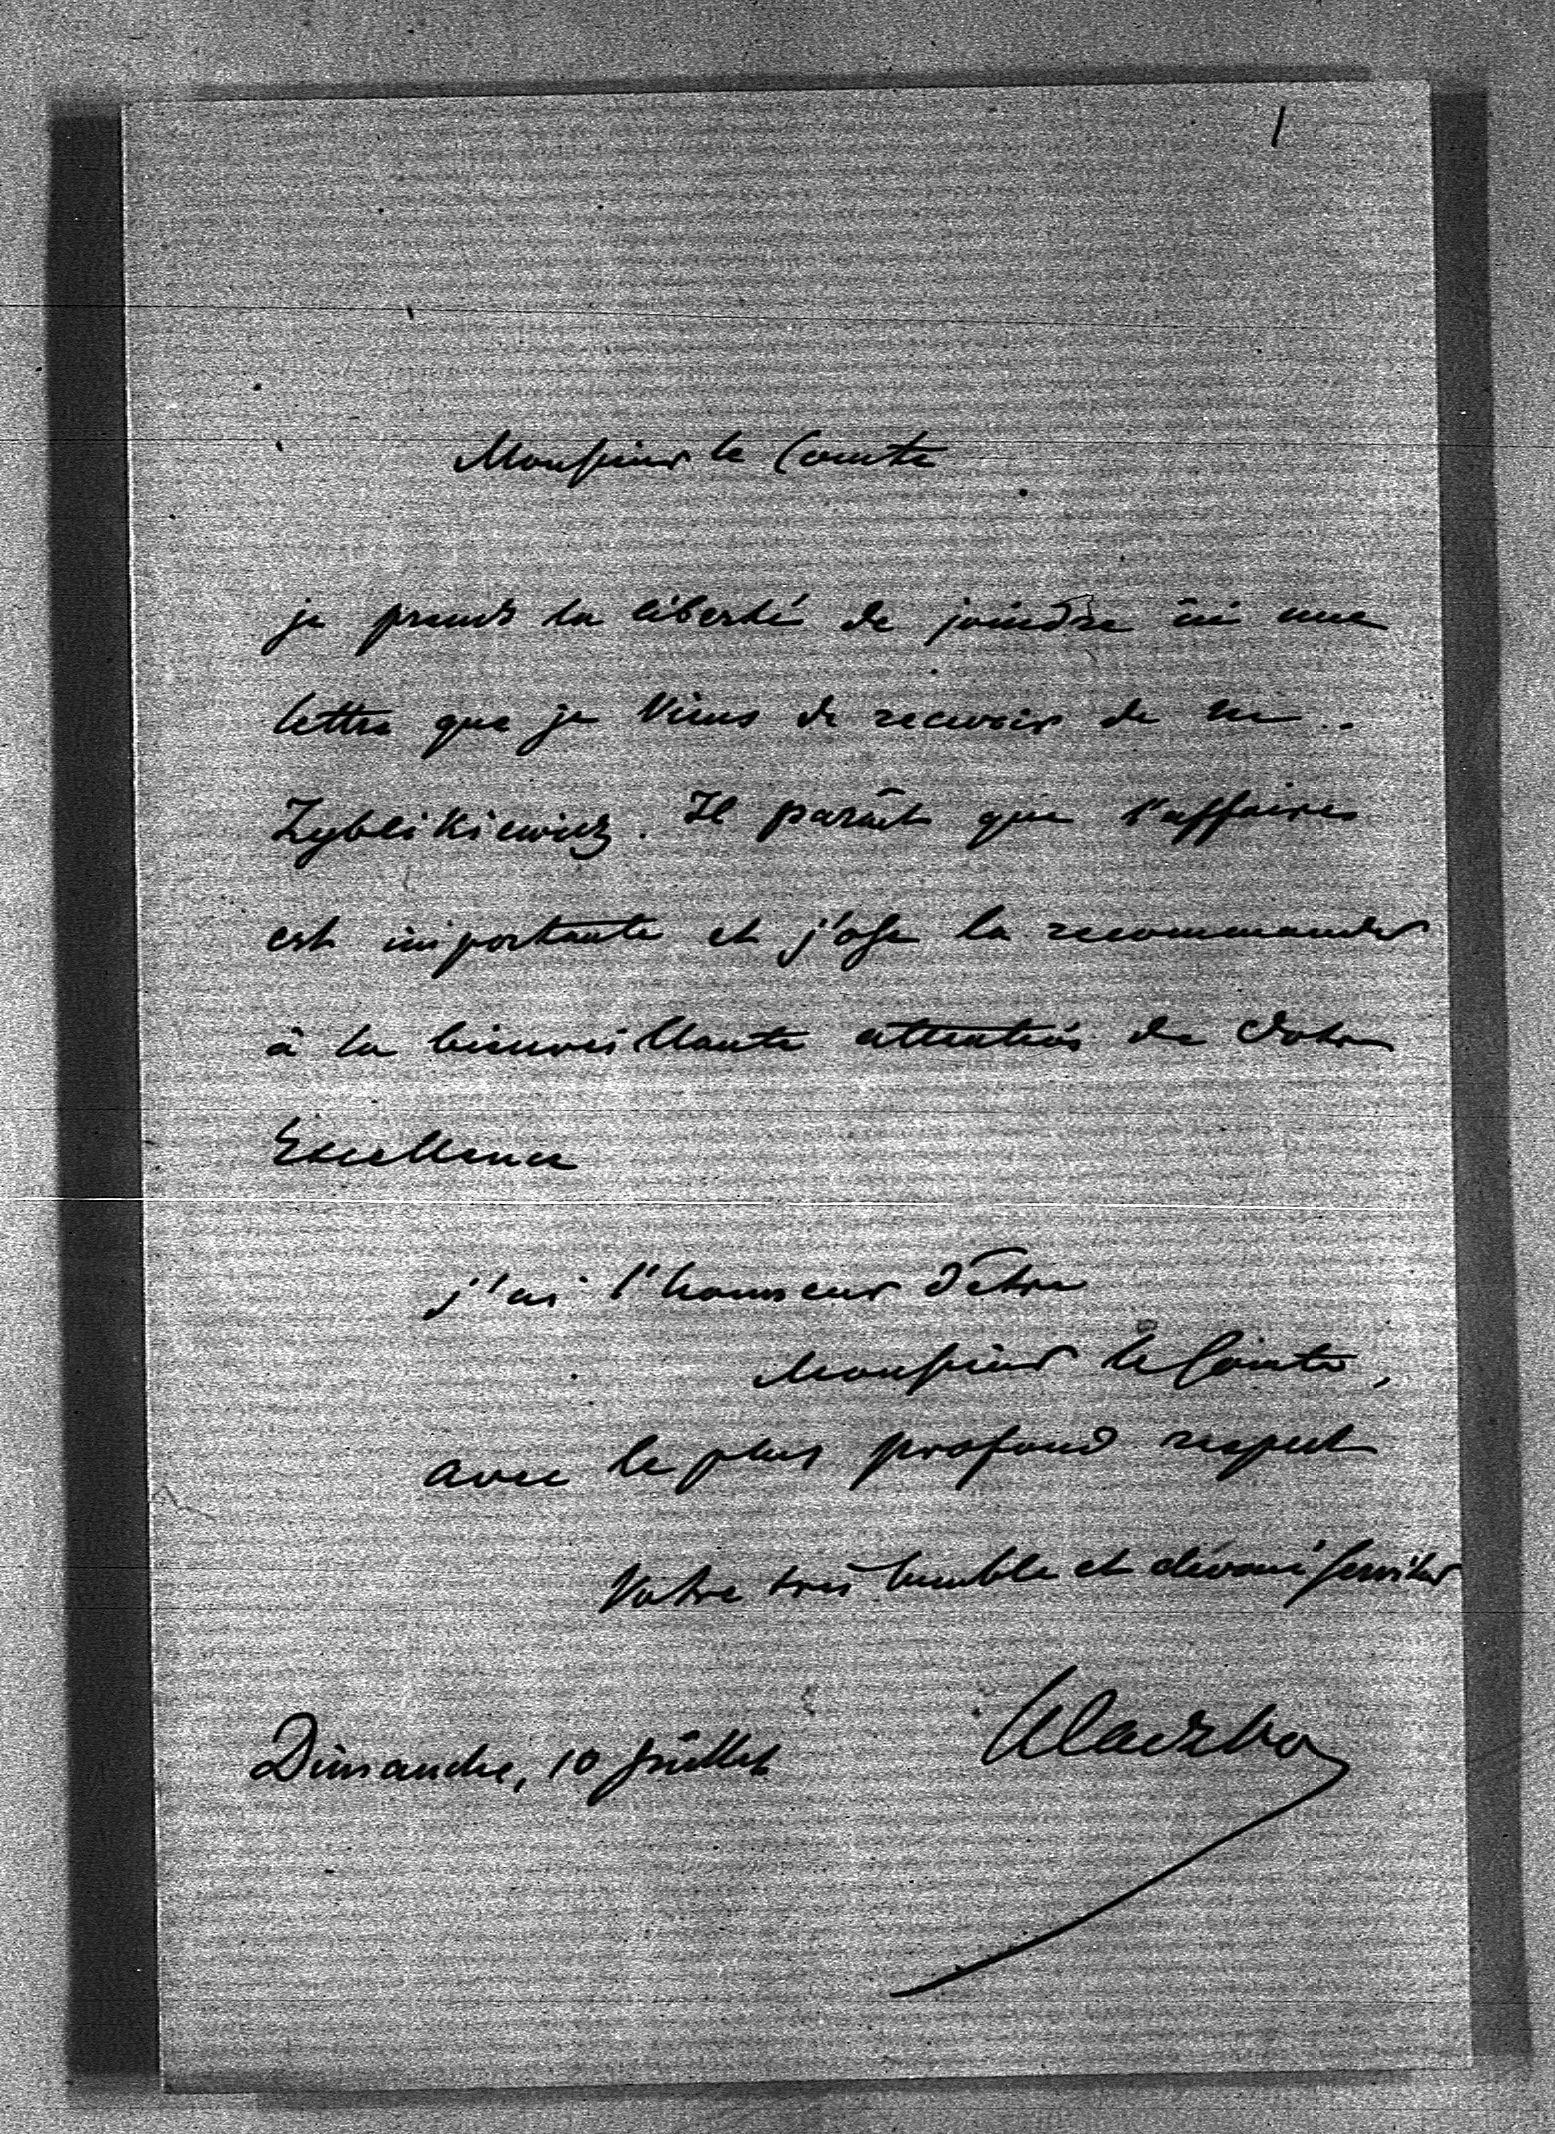 1
Monsieur le Comte
je prends la liberté de joindre ici une
lettre que je viens de recevoir de M.
Zyblikiewicz. Il parait que l'affaire
est importante et j'ose la recommander
à la bienveillante attention de Votre
Excellence
j'ai l'honneur d'être
Monsieur le Comte,
avec le plus profond respect
Votre très humble et dévoué serviteur
Klaczko
Dimanche, 10 Juillet